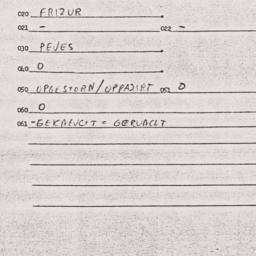 020 FRIZUR
021 - 022 -
030 PEJES
040 0
050 OPGESTORN/UPPAZIRT 051 0
060 0
061 -GEKRAUZT = GERUALT